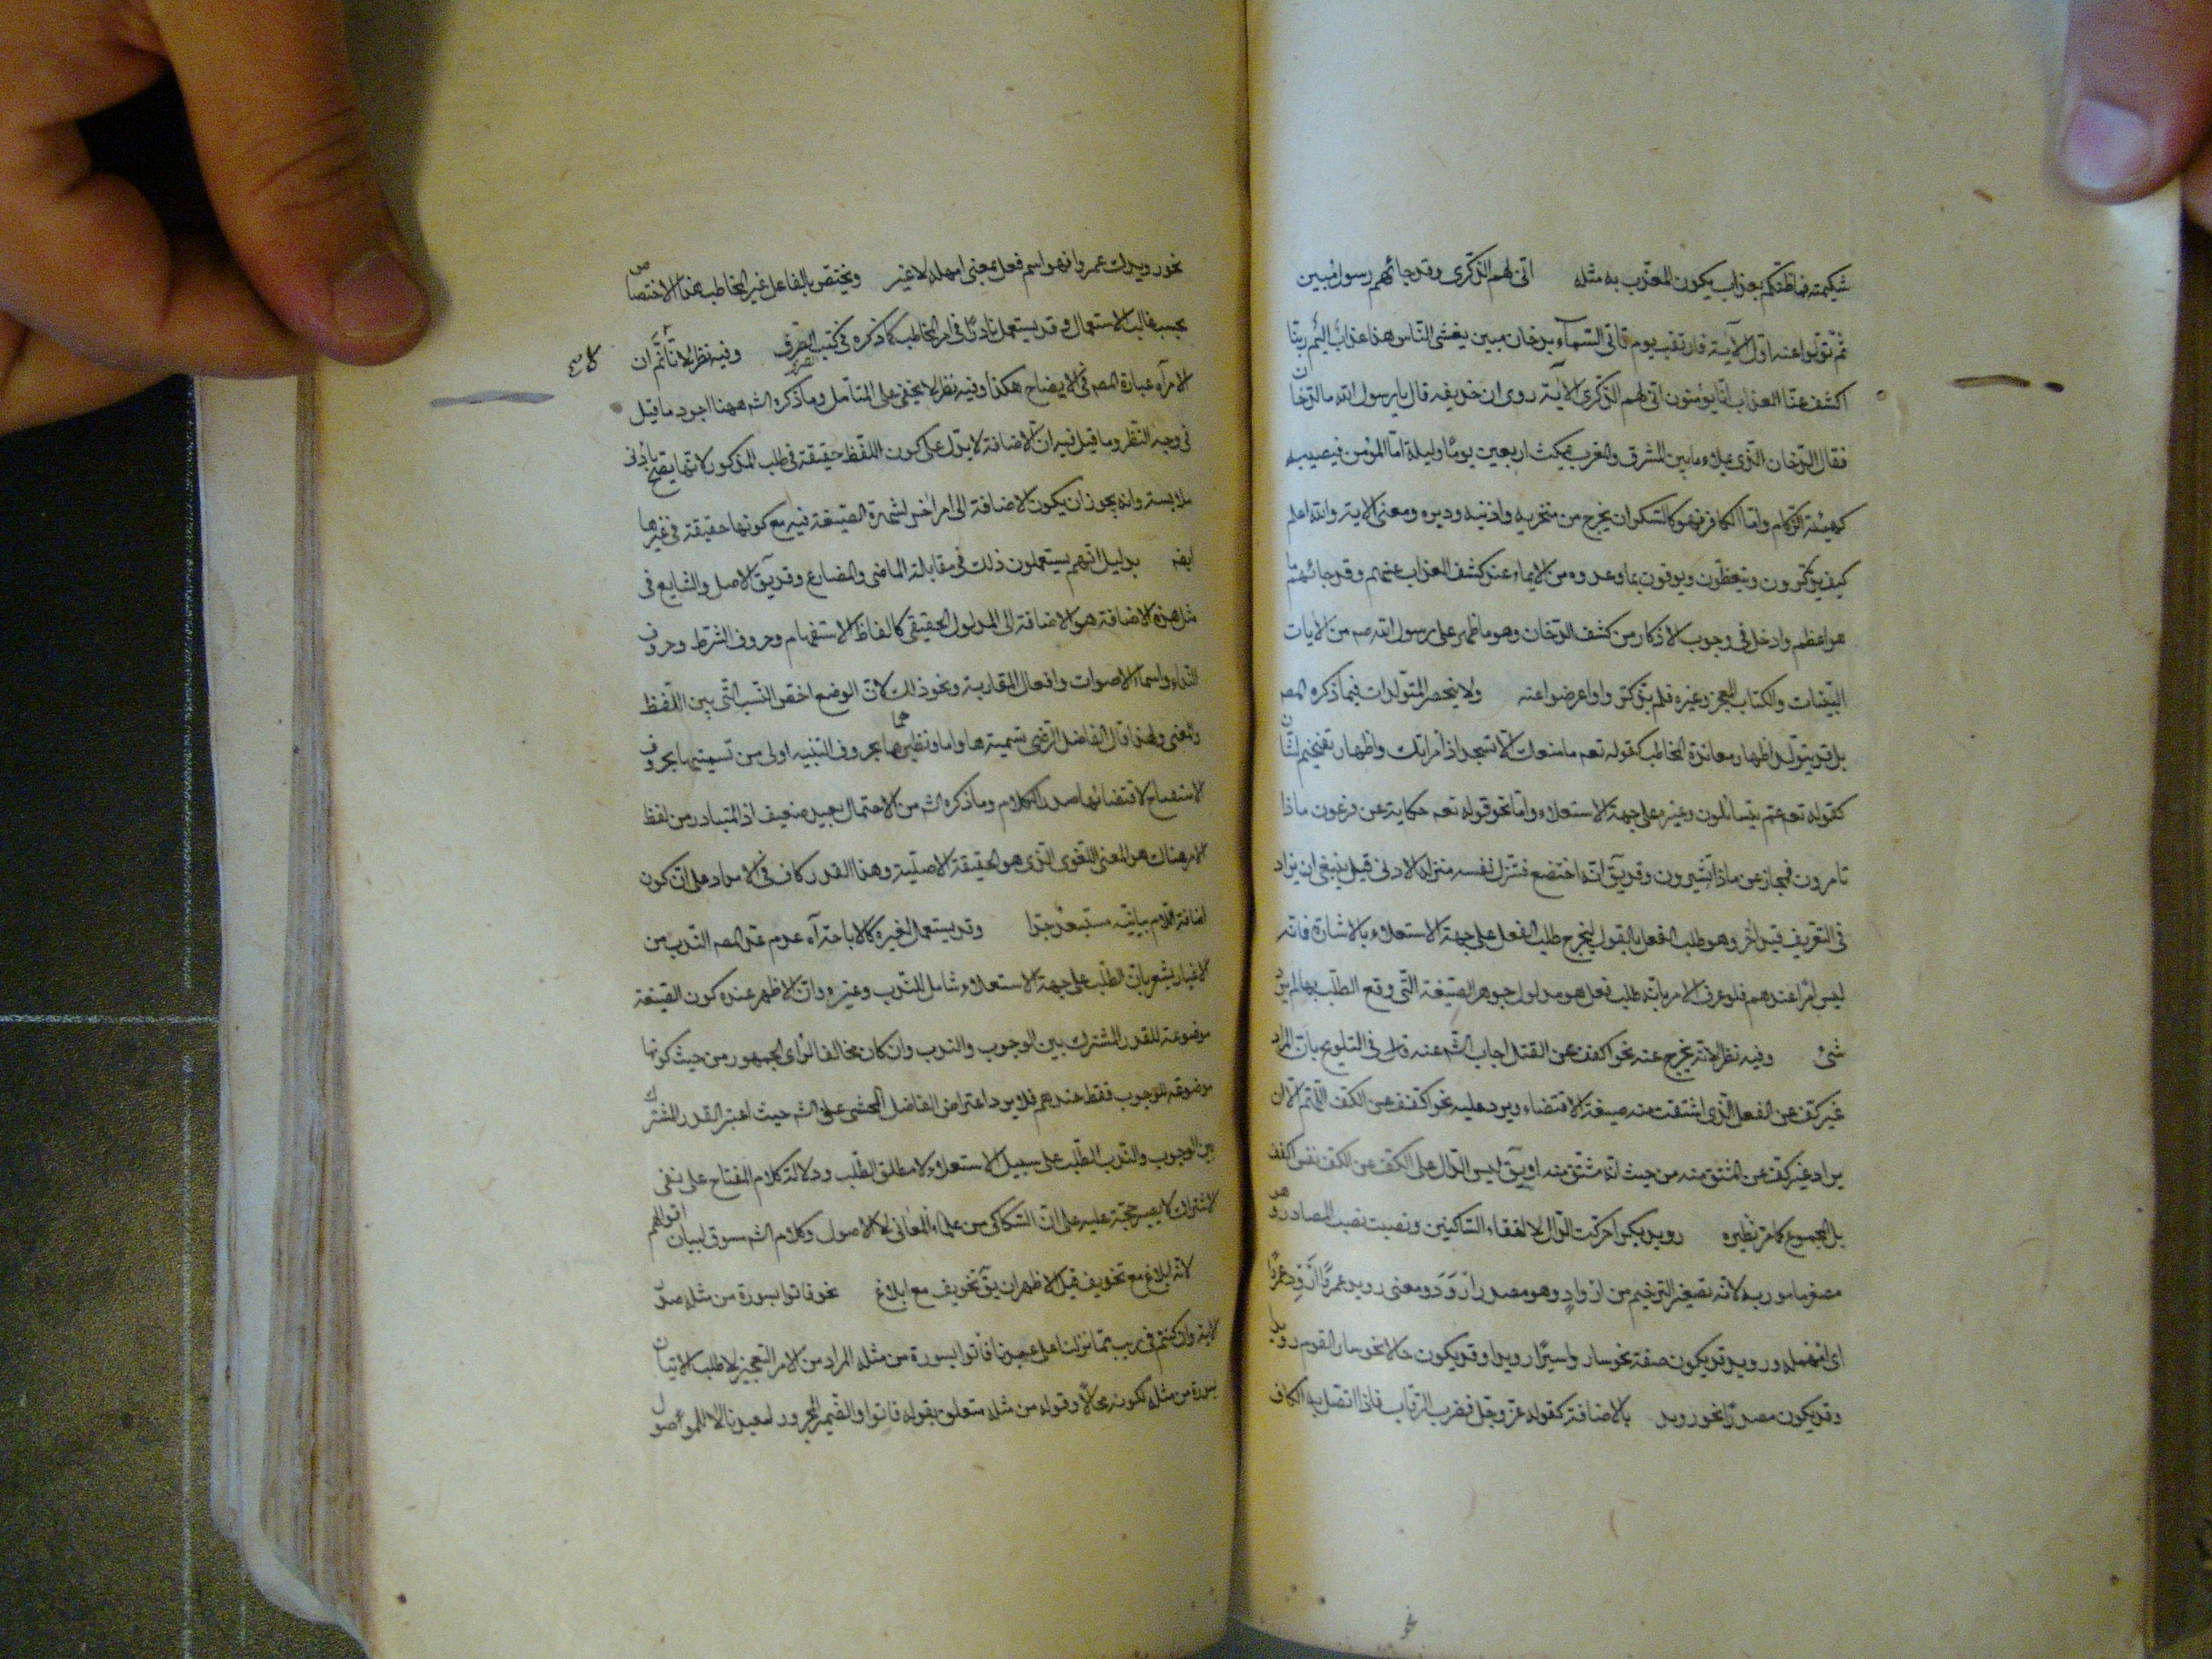 شكيمته فما ظنكم بعذاب يكون المعذب به مثله انى لهم الذكرى وقد جائهم رسول مبين
ثم تولوا عنه اول الآية فارتقب يوم تاتى السماء بدخان مبين يغشى الناس هذا عذاب اليم ربنا
اكشف عنا العذاب انا مؤمنون انى لهم الذكرى الآية روى ان حذيفه قال يا رسول الله ما الدخان
فقال الدخان الذى يملاء ما بين المشرق والمغرب يمكث اربعين يوما وليلة اما المؤمن فيصيبه
كهيئة الزكام واما الكافر فهو كالسكران يخرج من منخريه واذنيه ودبره ومعنى الاية والله اعلم
كيف يذكرون ويتعظون ويوفون بما وعدوه من الايماء عند كشف العذاب عنهم وقد جائهم ما
هو اعظم وادخل فى وجوب الاذكار من كشف الدخان وهو ما ظهر على رسول الله صم من الايات
البينات والكتاب المعجز وغيره فلم يذكروا واعرضوا عنه ولا ينحصر المتولدات فيما ذكره المصـ
بل قد يتولد اظهار معاندة المخاطب كقوله تعم ما منعك الا تسجد اذ امرتك واظهار تفخيم لشان
كقوله تعم عم يتسائلون وغيره على جهة الاستعلاء واما نحو قوله تعم حكاية عن فرعون ماذا
تامرون فمجاز عن ماذا تشيرون وقد يق انه اختضع فتنزل نفسه منزلة الادنى قيل ينبغى ان يزاد
فى التعريف قيد آخر وهو طلب الفعل بالقول ليخرج طلب الفعل على جهة الاستعلاء بالاشارة فانه
ليس امرا عندهم فلو عرف الامر بانه طلب فعل هو مدلول جوهر الصيغة التى وقع الطلب بها لم يرد
شئ وفيه نظر لانه يخرج عنه نحو اكفف عن القتل اجاب الشـ عنه قال فى التلويح بان المراد
غير كف عن الفعل الذى اشتقت منه صيغة الاقتضاء ويرد عليه نحو اكفف عن الكف اللهم الا ان
يراد غير كف عن المشتق منه من حيث انه مشتق منه او يق ليس الدال على الكف عن الكف نفس اكفف
بل المجموع كما مر نظيره رويد بكرا حركت الدال لالتقاء الساكنين ونصبت نصب المصادر وهو
مصغر مامور به لانه تصغير الترخيم من ارواد وهو مصدر ارود ومعنى رويد عمرا ارود عمرا
اى امهله ورويد قد يكون صفة نحو ساروا سيرا رويدا وقد يكون حالا نحو سار القوم رويدا
وقد يكون مصدرا نحو رويد بالاضافة كقوله عز وجل فضرب الرقاب فاذا اتصل به الكاف
نحو رويدك عمروا فهو اسم فعل بمعنى امهله لا غير ويختص بالفاعل غير المخاطب هذا الاختصاص
بحسب غالب الاستعمال وقد يستعمل نادرا فى امر المخاطب كما ذكره فى كتب الصرف وفيه نظر لانا نم ان
الامر آه عبارة المصـ فى الايضاح هكذا وفيه نظر لا يخفى على المتامل وما ذكره الشـ ههنا اجود ما قيل
فى وجه النظر وما قيل فيه ان الاضافة لا يدل على كون اللفظ حقيقة فى طلب المذكور لانها يصح بادنى
ملابسة وانه يجوز ان يكون الاضافة الى امر اخر لشهرة الصيغة فيه مع كونها حقيقة فى غيرها
ايضـ بدليل انهم يستعملون ذلك فى مقابلة الماضى والمضارع وقد يق الاصل والشايع فى
مثل هذه الاضافة هو الاضافة الى المدلول الحقيقى كالفاظ الاستفهام وحروف الشرط وحروف
النداء واسماء الاصوات وافعال المقاربة ونحو ذلك لان الوضع اخص النسب التى بين اللفظ
والمعنى ولهذا قال الفاضل الرضى تسمية ها واما ونظيرهما بحروف التنبيه اولى من تسميتها بحروف
الاستفتاح لاقتضائها صدر الكلام وما ذكره الشـ من الاحتمال بعيد ضعيف اذ المتبادر من لفظ
الامر هناك هو المعنى اللغوى الذى هو الحقيقة الاصلية وهذا القدر كاف فى الايراد على ان كون
اضافة اللام بيانية مستبعد جدا وقد يستعمل لغيره كالاباحة آه عدم عد المصـ الندب من
الاغيار يشعر بان الطلب على جهة الاستعلاء شامل للندب وغيره وان الاظهر عنده كون الصيغة
موضوعة للقدر المشترك بين الوجوب والندب وان كان مخالفا لراى الجمهور من حيث كونها
موضوعة للوجوب فقط عندهم فلا يرد اعتراض الفاضل المحشى على الشـ حيث اعتبر القدر المشترك
بين الوجوب والندب الطلب على سبيل الاستعلاء لا مطلق الطلب ودلالة كلام المفتاح على نفى
الاشتراك لا يصير حجة عليه على ان السكاكى من علماء المعانى لا الاصول وكلام الشـ مسوق لبيان اقوالهم
لانه ابلاغ مع تخويف قيل الاظهر ان يق تخويف مع ابلاغ نحو فاتوا بسورة من مثله صدر
الاية وان كنتم فى ريب مما نزلنا على عبدنا فاتوا بسورة من مثله المراد من الامر التعجيز لا طلب الاتيان
بسورة من مثله لكونه محالا وقوله من مثله متعلق بقوله فاتوا والضمير المجرور لعبدنا لا للموصول